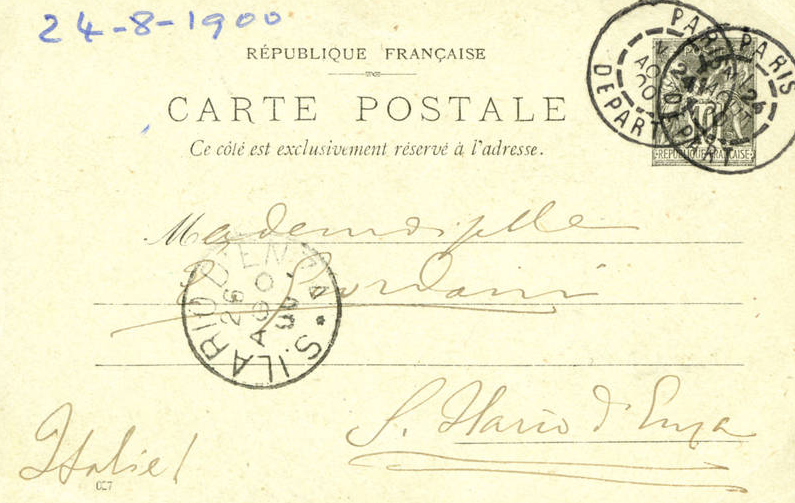 24-8-1900
RÉPUBLIQUE FRANÇAISE
CARTE POSTALE
Ce côté est exclusivement réservé à l'adresse.
PARIS
24
AOUT
DEPART
PARIS
24
AOUT
DEPART
RÉPUBLIQUE FRANÇAISE
Mademoiselle
S. ILARIO D'ENZA
26
AGO
00
S. Ilario d'Enza
Italie